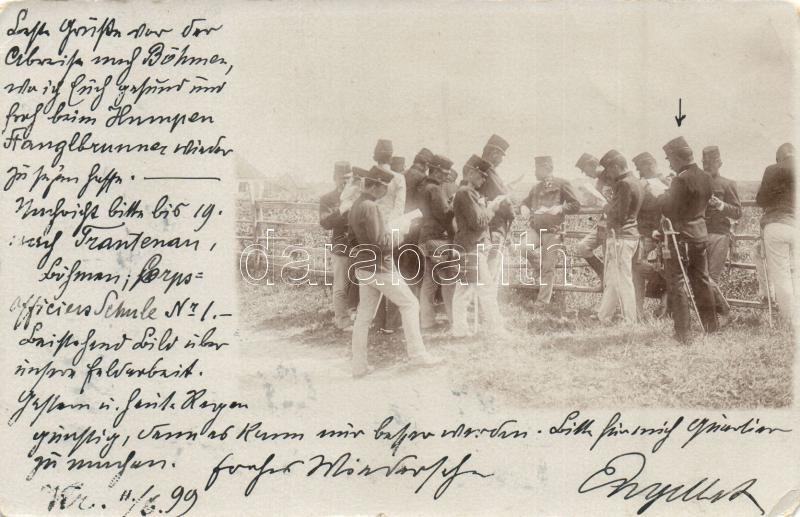 Beste Grüße vor der
Abreise nach Böhmen,
wo ich Euch gesund und
froh beim Humpen
wieder
zu sehen hoffe. —
Nachricht bitte bis 19.
nach Trautenau,
Böhmen; Corps=
officiersSchule Nr 1. –
Beistehend Bild über
unsere Feldarbeit.
Gestern u. heute Regen
günstig, denn es kann nur besser werden. Bitte für mich Quartier
zu machen. Frohes Wiedersehn
11/6 99
darabanth